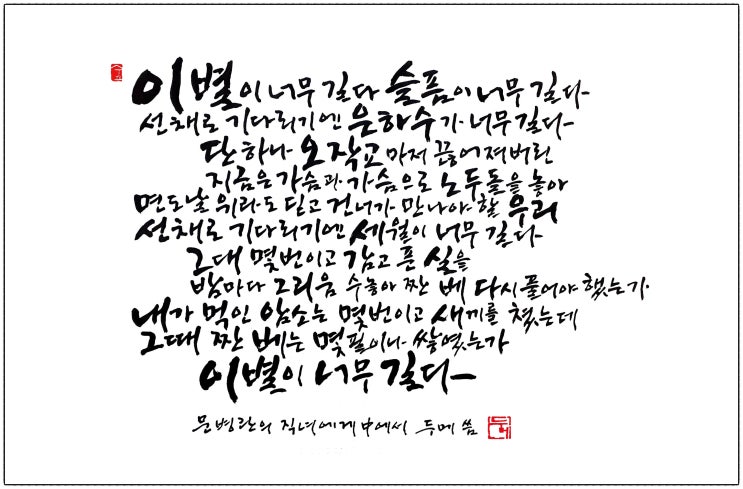 이별이 너무 길다 슬픔이 너무 길다
선채로 기다리기엔 은하수가 너무 길다
단 하나 오작교 마저 끊어져버린
지금은 가슴과 가슴으로 노두돌을 놓아
면도날 위라도 딛고 건너가 만나야 할 우리
선채로 기다리기엔 세월이 너무 길다
그대 몇번이고 감고 푼 실을
밤마다 그리움 수놓아 짠 베 다시 풀어야 했는가
내가 먹인 암소는 몇번이고 새끼를 쳤는데
그대 짠 베는 몇필이나 쌓였는가
이별이 너무 길다
문병란의 직녀에게 中에서 두메 씀
두메